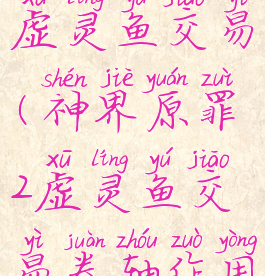 xū líng yú jiāo yì
虚灵鱼交易
shén jiè yuán zuì
(神界原罪
xū líng yú jiāo
2虚灵鱼交
yì juàn zhóu zuò yòng
易卷轴作用